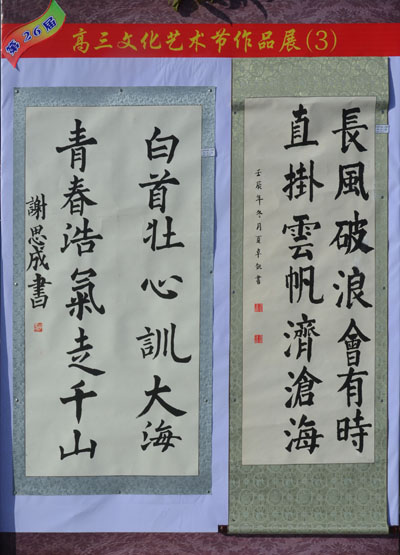 第26届
高三文化艺术节作品展(3)
長風破浪會有時
直掛雲帆濟滄海
壬辰年冬月夏卓
書
白首壮心訓大海
青春浩氣走千山
謝思成書